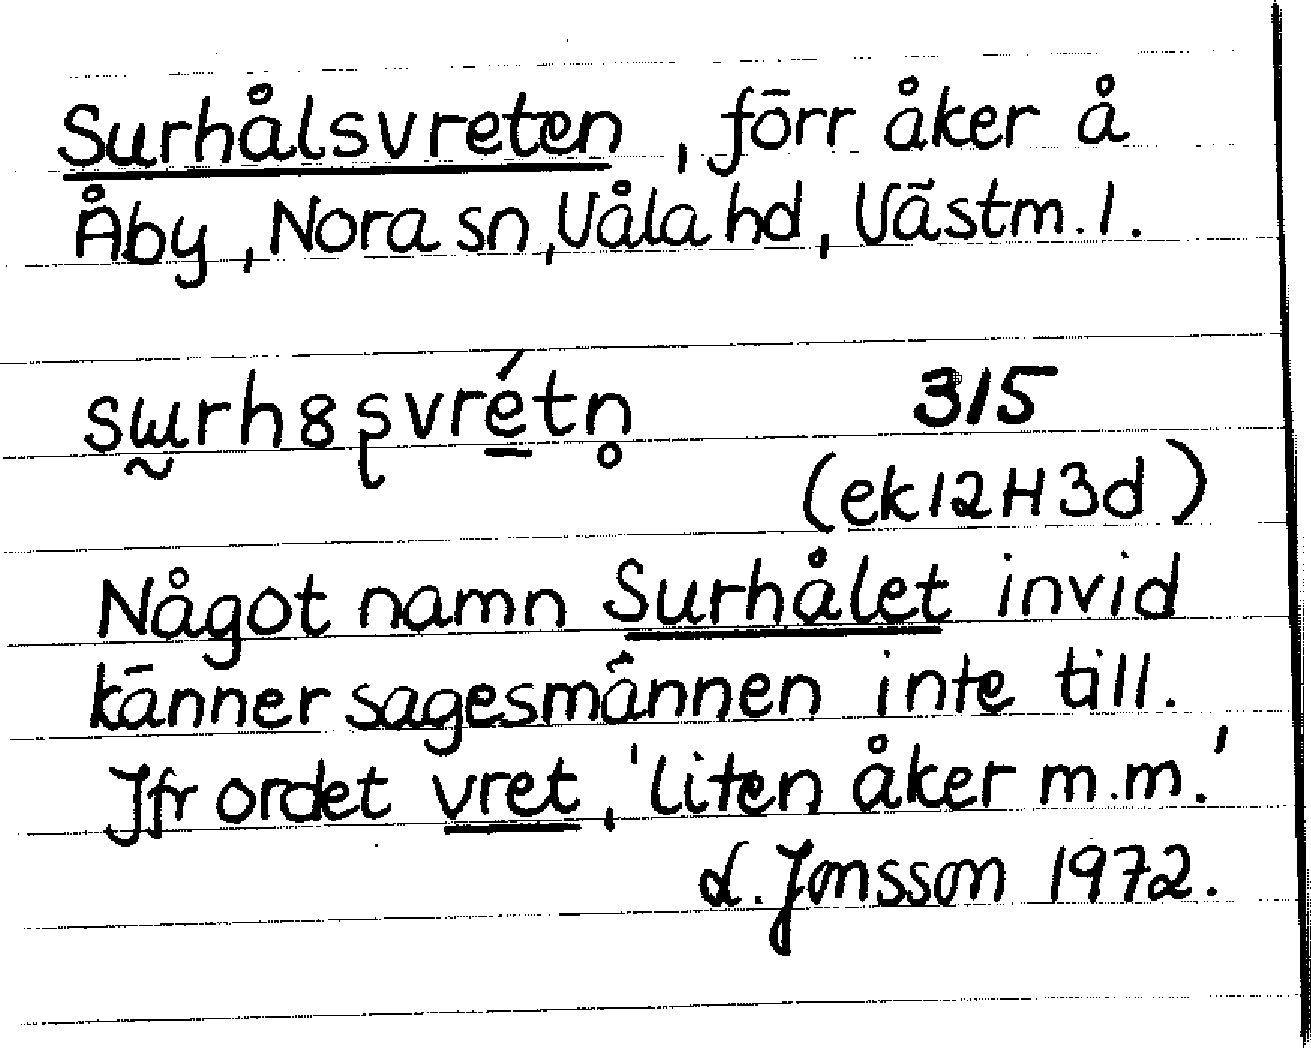 Surhålsvreten, förr åker å
Åby, Nora sn, Våla hd, Västm. l.
sɯ̰rh8ʂvré̱tn̥
315
(ek 12H3d)
Något namn Surhålet invid
känner sagesmännen inte till.
Jfr ordet vret, 'liten åker m.m.'
L. Jonsson 1972.